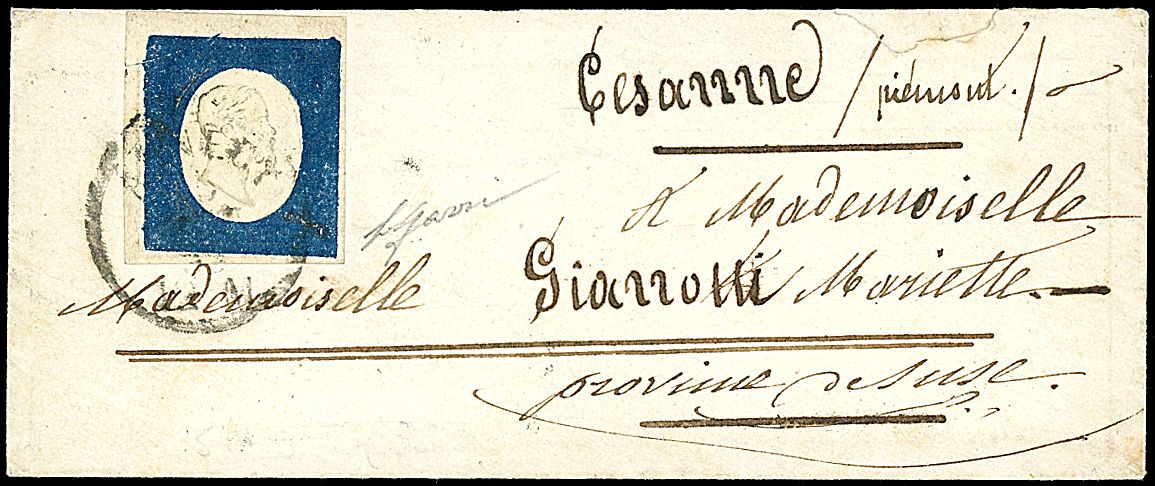 Cesanne / piémont. /
A Mademoiselle
Mademoiselle Gianotti Mariette.
province de Suse.